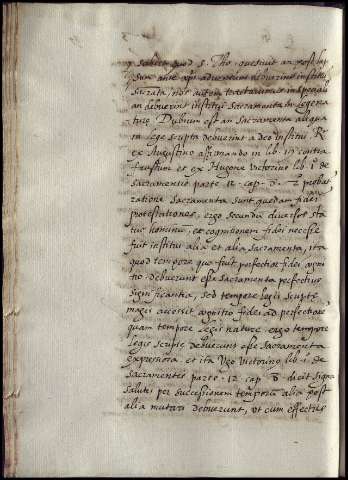 scilicet quod S. Tho. quesivit an post lap
sum ante xpi adventum debuerint institui
sacrata, nos autem tractaturus in speciali
an debuerint institui sacramenta in lege na
ture. Dubium est an sacramenta aliqua
in lege scripta debuerint a Deo institui. Rx
ex Augustino affirmando in lib. 19 contra
faustum et ex Hugone Victorino lib. 1 de
sacramentis parte 12 cap. et probat
ratione sacramenta sunt quedam fidei
protestationes, ergo secundum diversos sta
tus hominum, et cognitionem fidei necesse
fuit institui alia et alia sacramenta, ita
quod tempore quo fuit perfectior fidei cogni
tio debuerunt esse sacramenta perfectius
significantia, sed tempore legis scripte
magis accessit cognitio fidei ad perfectiorem
quam tempore legis nature. ergo tempore
legis scripte debuerunt esse sacramenta
expressiora. et ita Ugo Victorino lib. 1 de
sacramentis parte 12 cap. dicit signa
salutis per successionem temporum alia post
alia mutari debuerunt, ut cum effectus